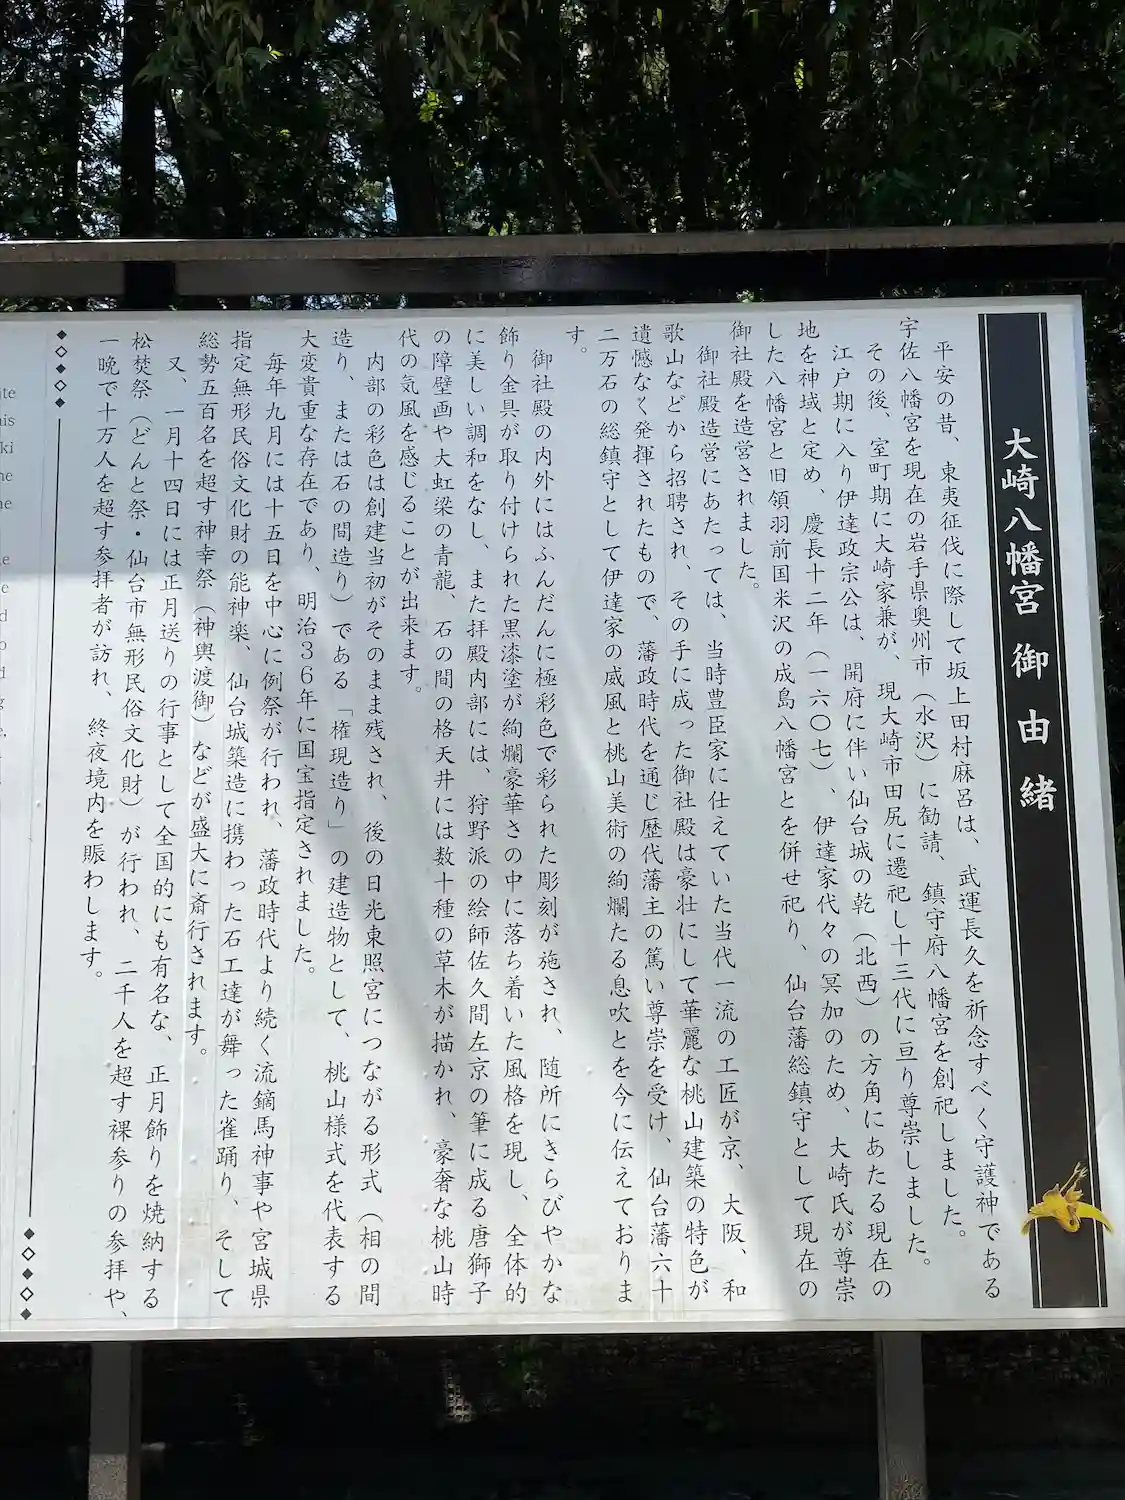 大崎八幡宮 御由緒
平安の昔、東夷征伐に際して坂上田村麻呂は、武運長久を祈念すべく守護神である
宇佐八幡宮を現在の岩手県奥州市（水沢）に勧請、鎮守府八幡宮を創祀しました。
その後、室町期に大崎家兼が、現大崎市田尻に遷祀し十三代に亘り尊崇しました。
江戸期に入り伊達政宗公は、開府に伴い仙台城の乾（北西）の方角にあたる現在の
地を神域と定め、慶長十二年（一六〇七）、伊達家代々の冥加のため、大崎氏が尊崇
した八幡宮と旧領羽前国米沢の成島八幡宮とを併せ祀り、仙台藩総鎮守として現在の
御社殿を造営されました。
御社殿造営にあたっては、当時豊臣家に仕えていた当代一流の工匠が京、大阪、和
歌山などから招聘され、その手に成った御社殿は豪壮にして華麗な桃山建築の特色が
遺憾なく発揮されたもので、藩政時代を通じ歴代藩主の篤い尊崇を受け、仙台藩六十
二万石の総鎮守として伊達家の威風と桃山美術の絢爛たる息吹とを今に伝えておりま
す。
御社殿の内外にはふんだんに極彩色で彩られた彫刻が施され、随所にきらびやかな
飾り金具が取り付けられた黒漆塗が絢爛豪華さの中に落ち着いた風格を現し、全体的
に美しい調和をなし、また拝殿内部には、狩野派の絵師佐久間左京の筆に成る唐獅子
の障壁画や大虹梁の青龍、石の間の格天井には数十種の草木が描かれ、豪奢な桃山時
代の気風を感じることが出来ます。
内部の彩色は創建当初がそのまま残され、後の日光東照宮につながる形式（相の間
造り、または石の間造り）である「権現造り」の建造物として、桃山様式を代表する
大変貴重な存在であり、明治３６年に国宝指定されました。
毎年九月には十五日を中心に例祭が行われ、藩政時代より続く流鏑馬神事や宮城県
指定無形民俗文化財の能神楽、仙台城築造に携わった石工達が舞った雀踊り、そして
総勢五百名を超す神幸祭（神輿渡御）などが盛大に斎行されます。
又、一月十四日には正月送りの行事として全国的にも有名な、正月飾りを焼納する
松焚祭（どんと祭・仙台市無形民俗文化財）が行われ、二千人を超す裸参りの参拝や、
一晩で十万人を超す参拝者が訪れ、終夜境内を賑わします。